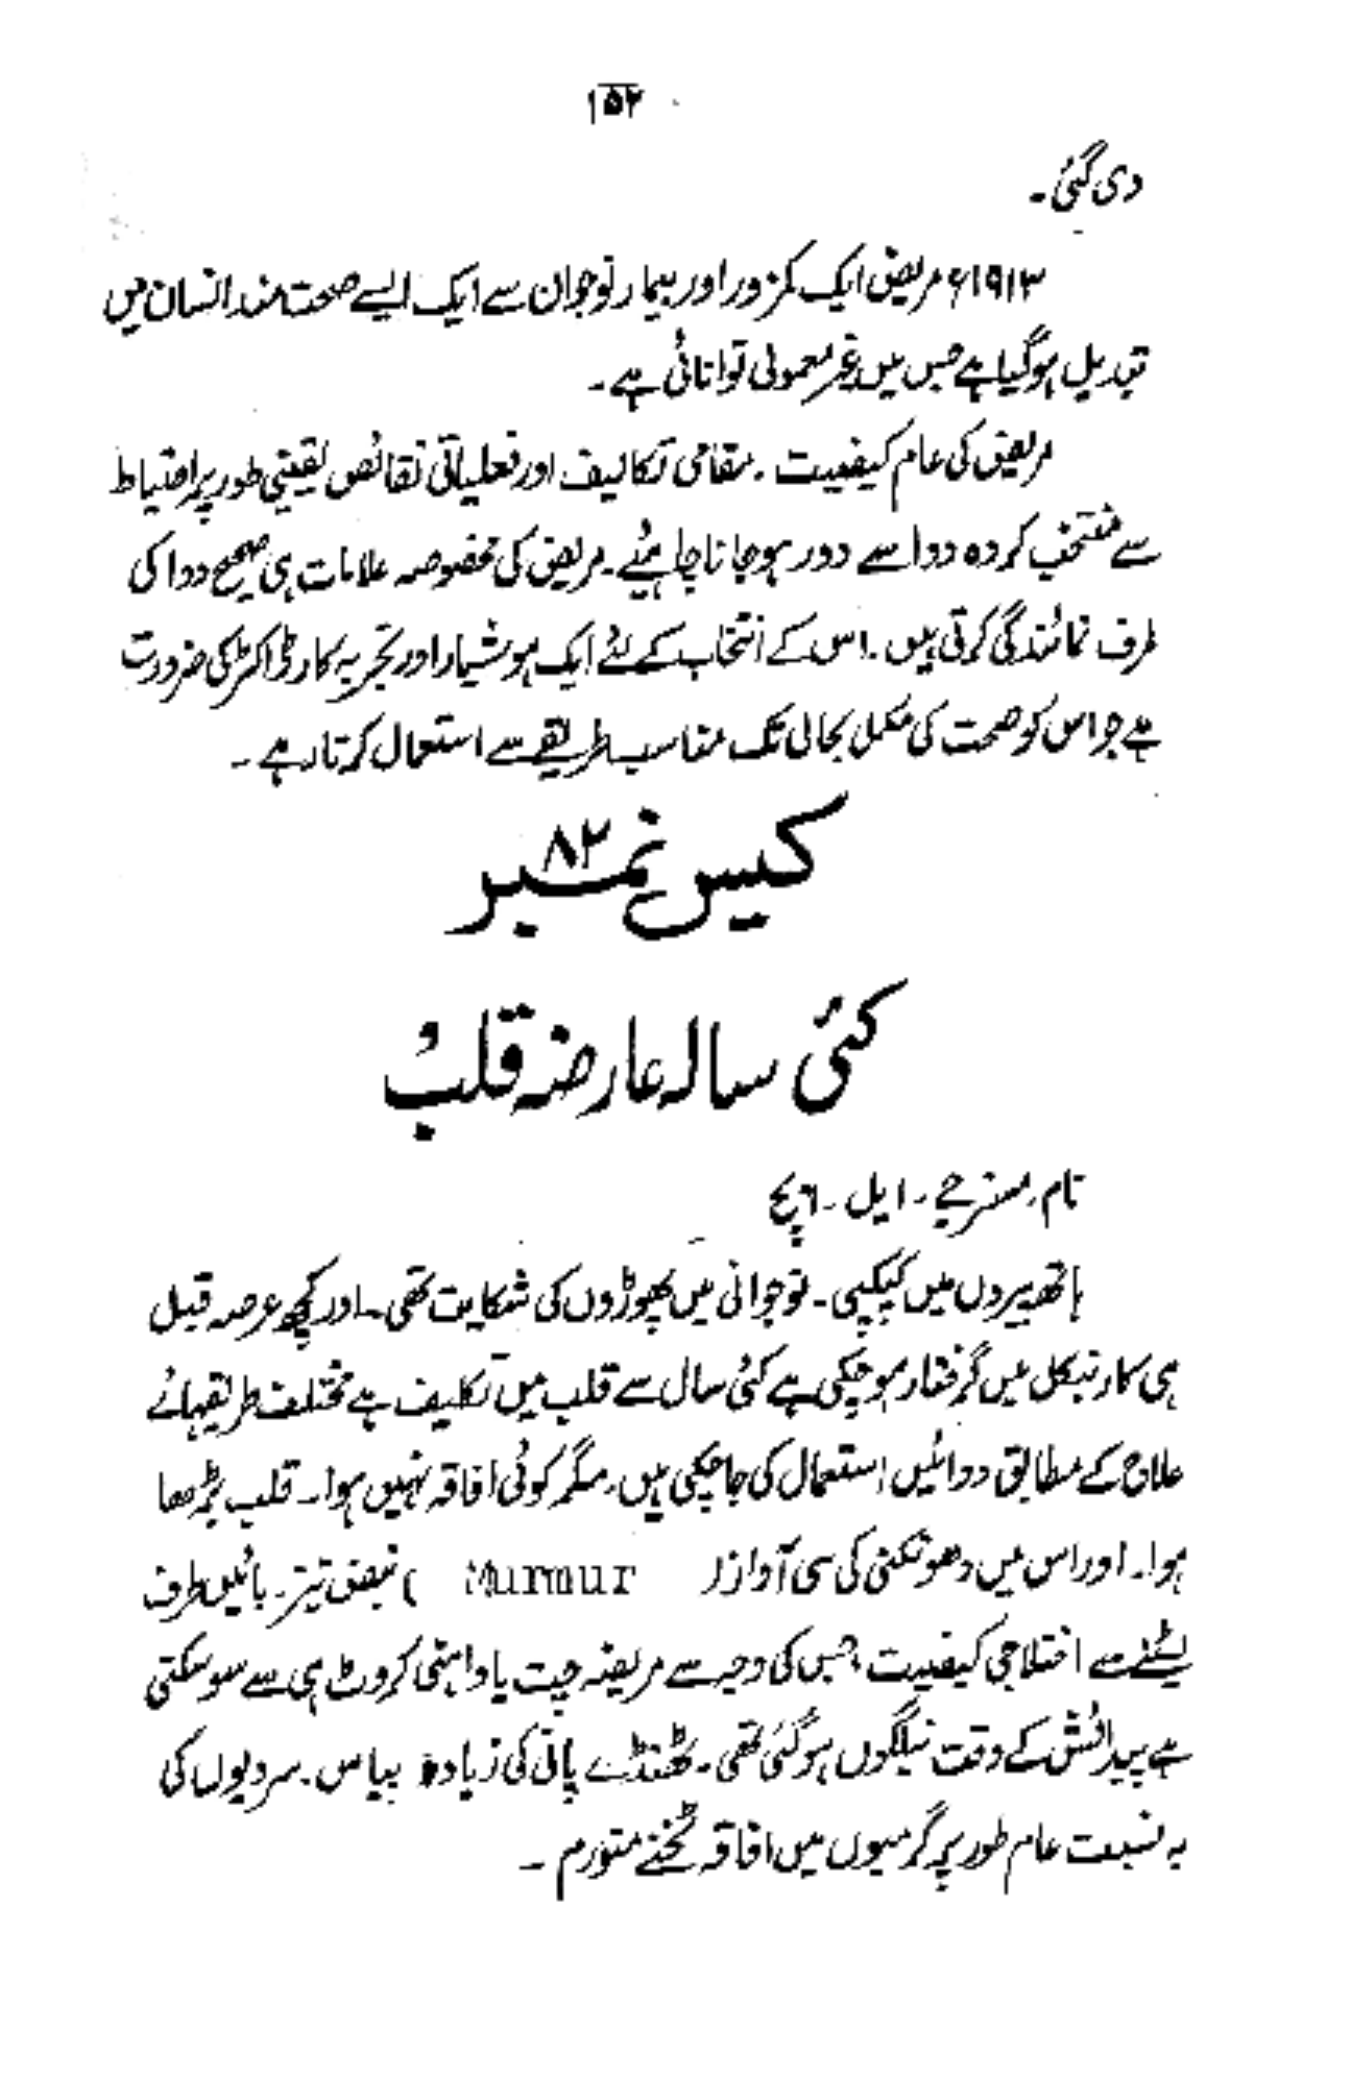 ۱۵۲
دی گئی۔
۱۹۱۳ء مریض ایک کمزور اور بیمار نوجوان سے ایک ایسے صحت مند انسان میں
تبدیل ہوگیا ہے جس میں غیر معمولی توانائی ہے۔
مریض کی عام کیفیت۔ مقامی تکالیف اور فعلیاتی نقائص یقینی طور پر احتیاط
سے منتخب کردہ دوا سے دور ہوجانا چاہئیے۔ مریض کی مخصوصہ علامات ہی صحیح دوا کی
طرف نمائندگی کرتی ہیں۔ اس کے انتخاب کے لئے ایک ہوشیار اور تجربہ کار ڈاکٹر کی ضرورت
ہے جو اس کو صحت کی مکمل بحالی تک مناسب طریقے سے استعمال کرتا رہے۔
کیس نمبر ۸۲
کئی سالہ عارضہ قلب
نام۔ مسز جے۔ ایل۔ ایچ
ہاتھ پیروں میں کپکپی۔ نوجوانی میں پھوڑوں کی شکایت تھی۔ اور کچھ عرصہ قبل
ہی کارنبکل میں گرفتار ہوچکی ہے کئی سال سے قلب میں تکلیف ہے مختلف طریقہائے
علاج کے مطابق دوائیں استعمال کی جاچکی ہیں۔ مگر کوئی افاقہ نہیں ہوا۔ قلب بڑھا
ہوا۔ اور اس میں دھونکنی کی سی آواز (Murmur) نبض تیز۔ بائیں طرف
لیٹنے سے اختلاجی کیفیت جس کی وجہ سے مریضہ چت یا داہنی کروٹ ہی سے سوسکتی
ہے پیدائش کے وقت نیلگوں ہوگئی تھی۔ ٹھنڈے پانی کی زیادہ پیاس۔ سردیوں کی
بہ نسبت عام طور پر گرمیوں میں افاقہ ٹخنے متورم۔